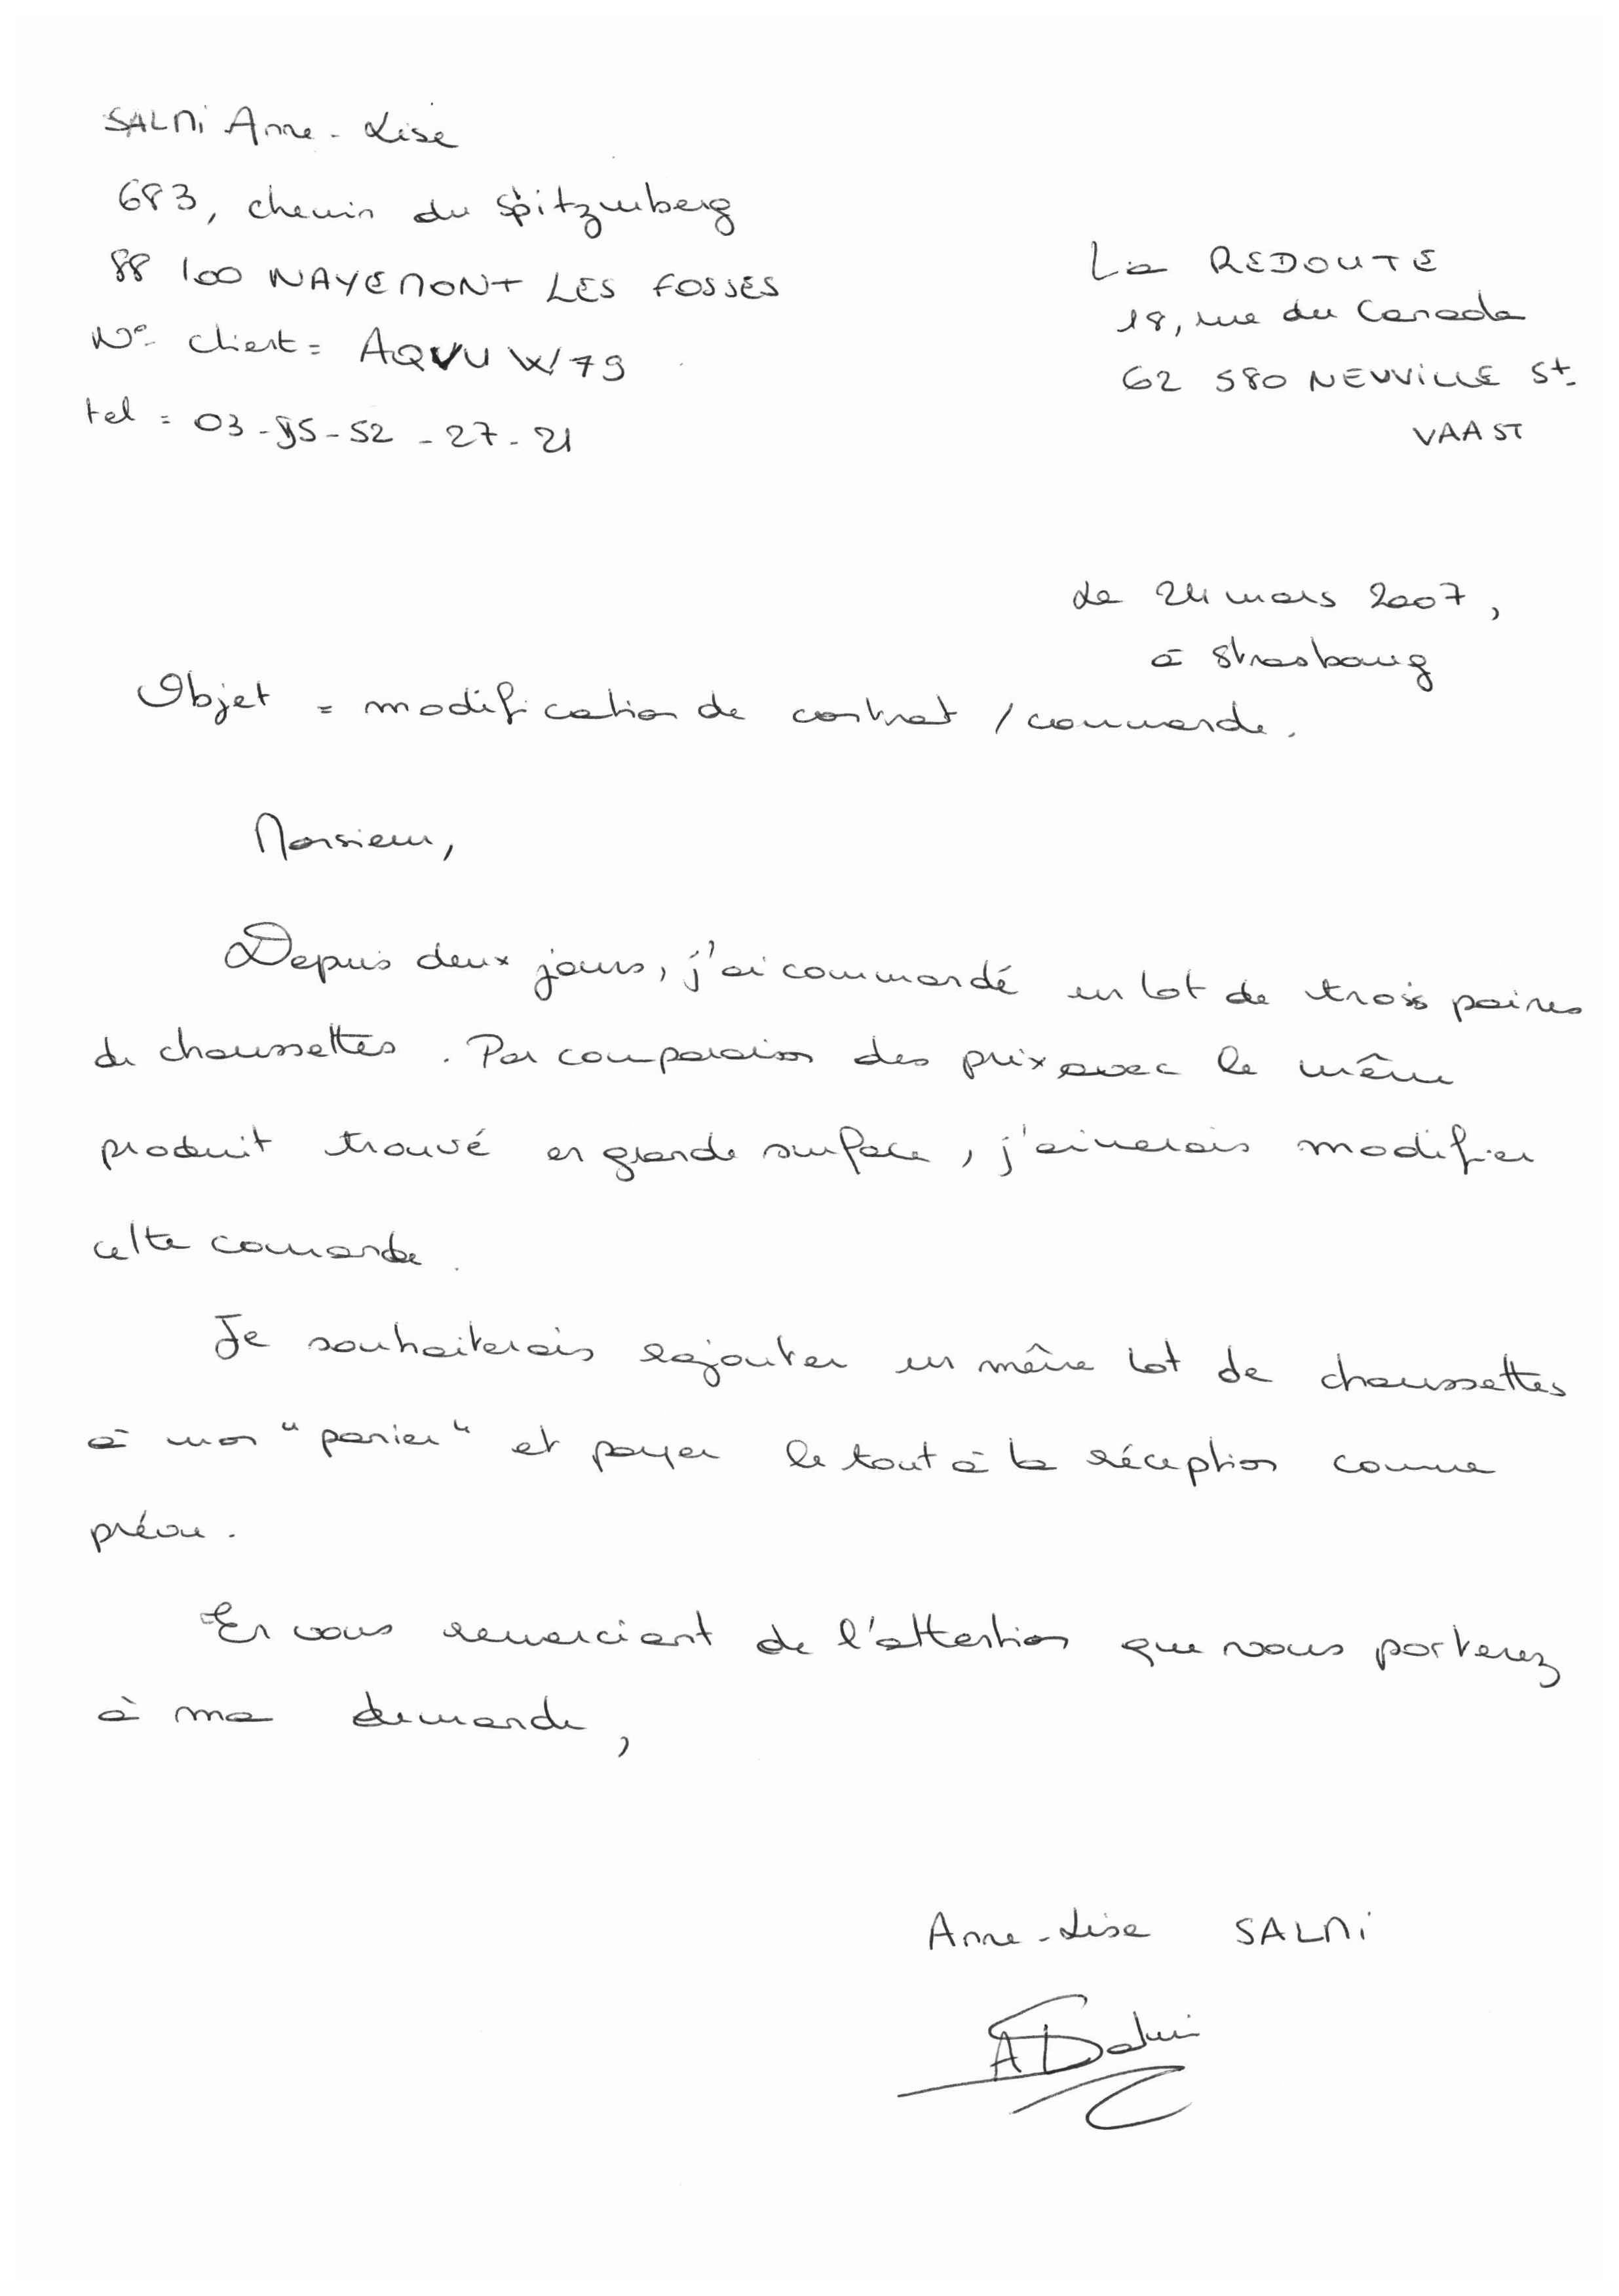 SALMi Anne-Lise
683, chemin du Spitzemberg
88 100 NAYEMONT LES FOSSES
N° client = AQVUW79
tel = 03-95-52-27-21
La REDOUTE
18, rue du Canada
62 580 NEUVILLE St-
VAAST
Le 24 mars 2007,
à Strasbourg
Objet = modification de contrat / commande.
Monsieur,
Depuis deux jours, j'ai commandé un lot de trois paires
de chaussettes. Par comparaison des prix avec le même
produit trouvé en grande surface, j'aimerais modifier
cette comande.
Je souhaiterais rajouter un même lot de chaussettes
à mon "panier" et payer le tout à la réception comme
prévu.
En vous remerciant de l'attention que vous porterez
à ma demande,
Anne-Lise SALMi
ASalmi